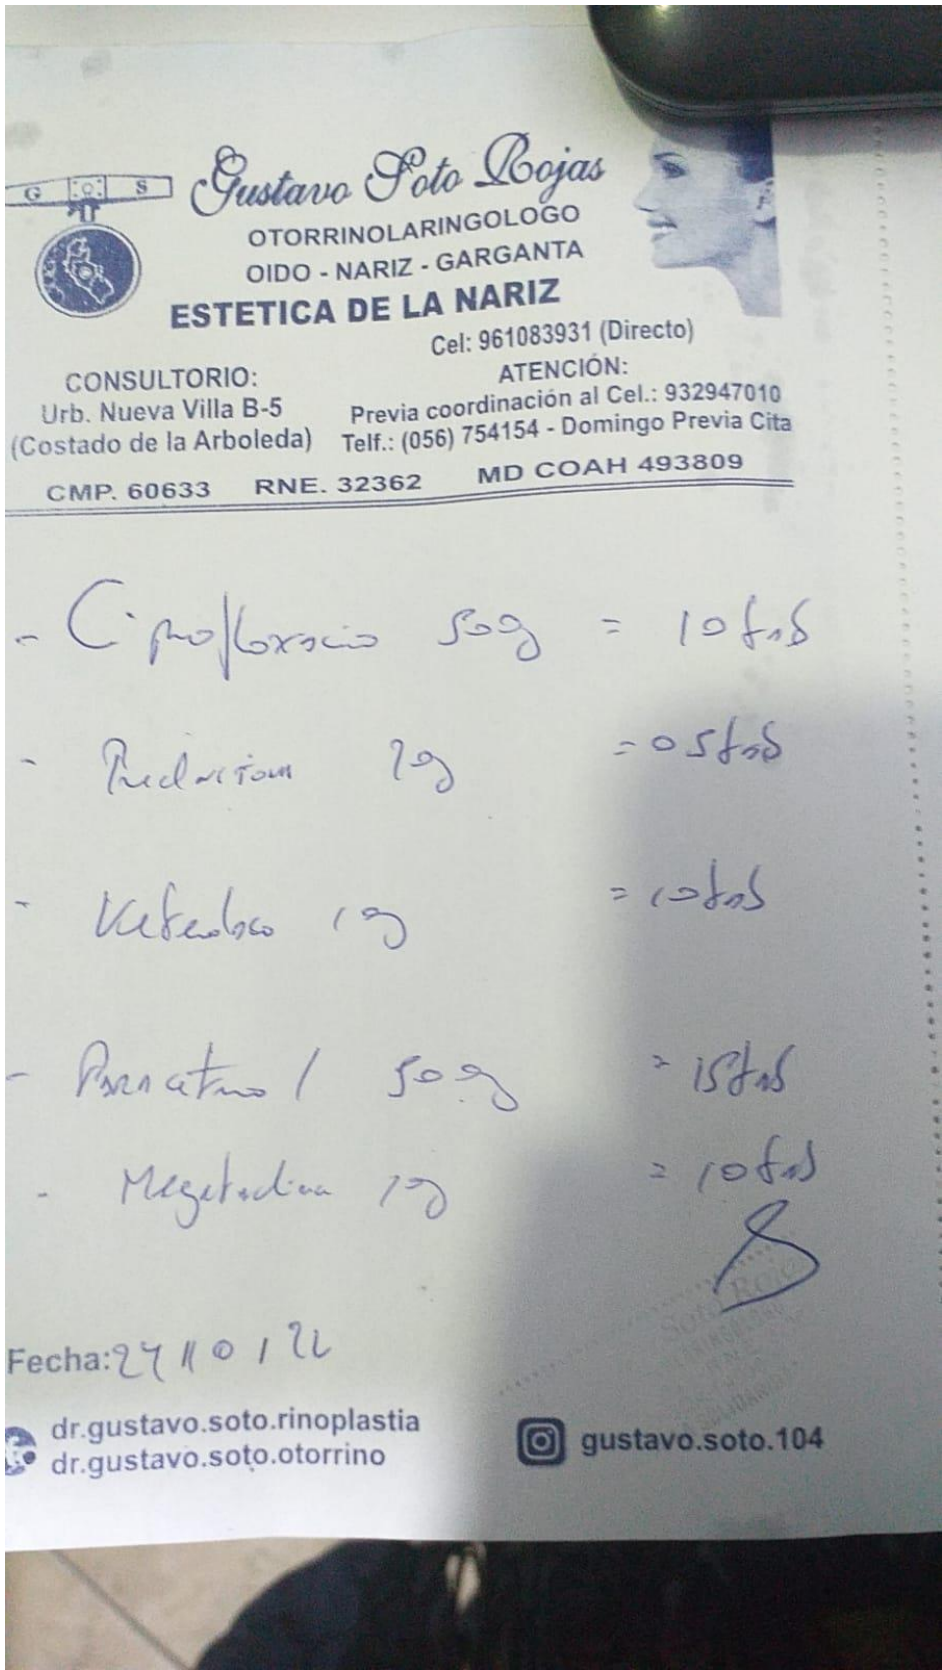 G S
Gustavo Soto Rojas
OTORRINOLARINGOLOGO
OIDO - NARIZ - GARGANTA
ESTETICA DE LA NARIZ
Cel: 961083931 (Directo)
CONSULTORIO:
Urb. Nueva Villa B-5
(Costado de la Arboleda)
ATENCIÓN:
Previa coordinación al Cel.: 932947010
Telf.: (056) 754154 - Domingo Previa Cita
CMP. 60633 RNE. 32362 MD COAH 493809
- Ciprofloxacino = 10
- = 05
- Ketorolaco = 10
- Paracetamol = 15
- Megetadina = 10
Soto Roja
Fecha: 24/10/22
dr.gustavo.soto.rinoplastia
dr.gustavo.soto.otorrino
gustavo.soto.104